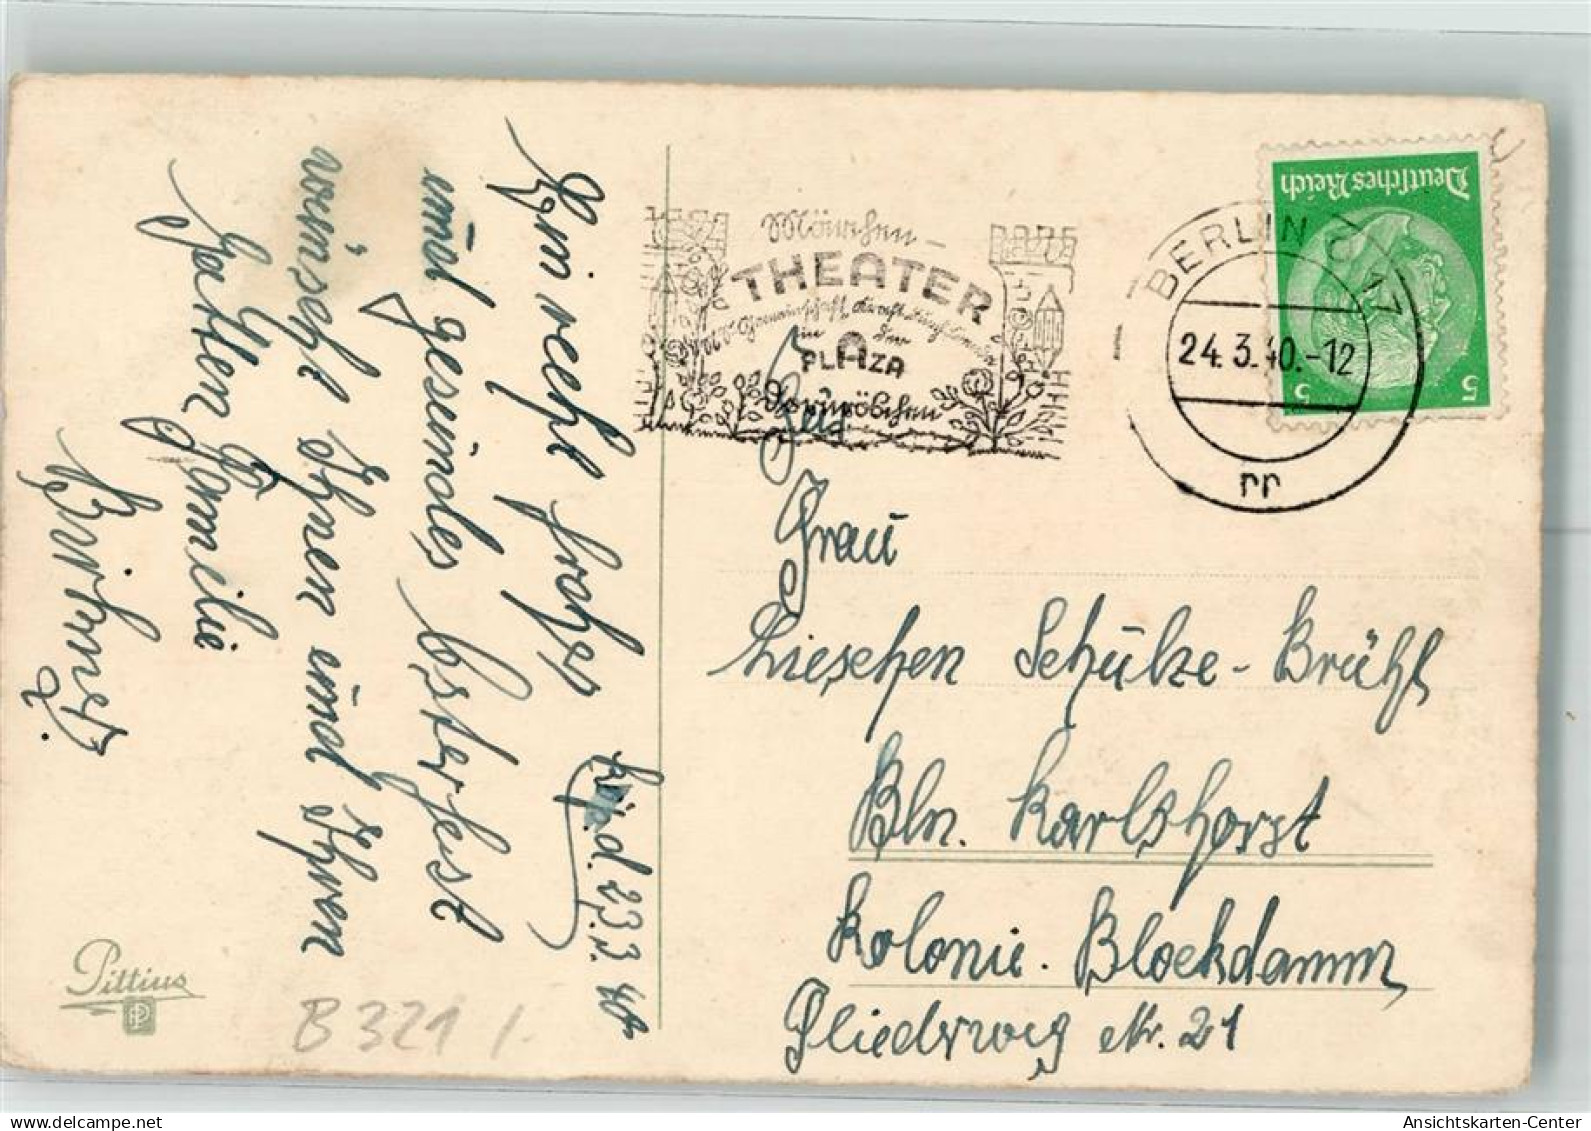 Köp. d. 23.3.40
Ein recht frohes
und gesundes Osterfest
wünscht Ihnen und Ihrer
Familie
Pittius
PP
B 321 /-
Märchen-
THEATER
N.S. Gemeinschaft Kraft durch Freude
in der
PLAZA
Dornröschen
BERLIN O 17
24.3.40.-12
rr
Deutsches Reich
5 5
Frau
Lieschen Schulze-Brühl
Bln. Karlshorst
Kolonie. Blockdamm
Fliederweg Nr. 21
Ansichtskarten-Center